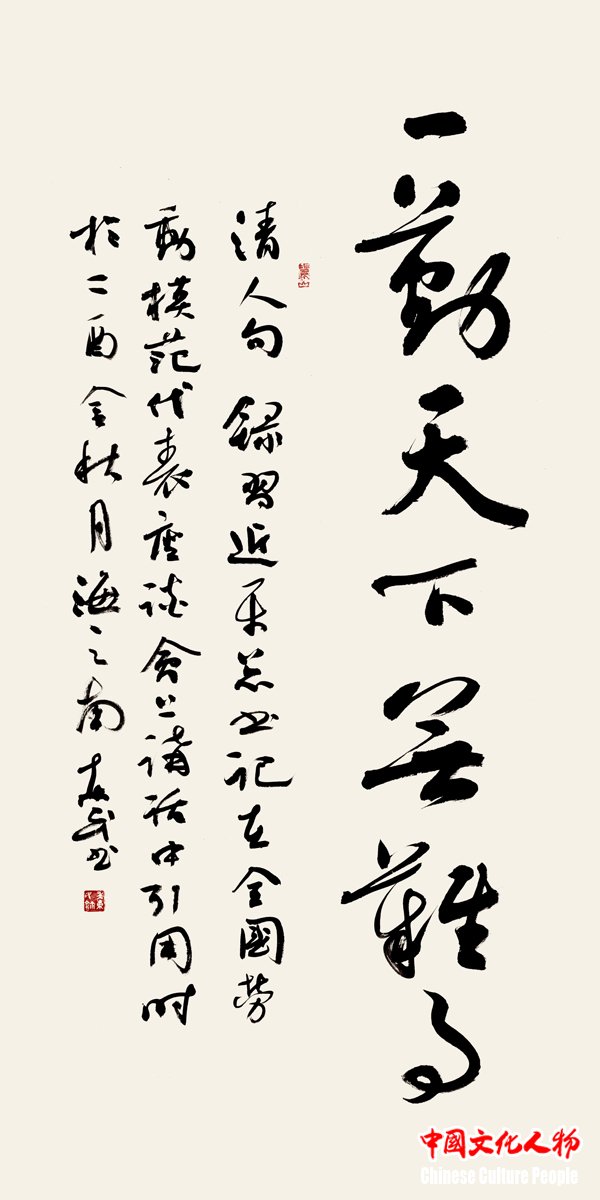 一勤天下無難事
清人句 錄習近平总书记在全國劳
動模范代表座谈會上講话中引用时
於丁酉金秋月海之南 书
中國文化人物
Chinese Culture People